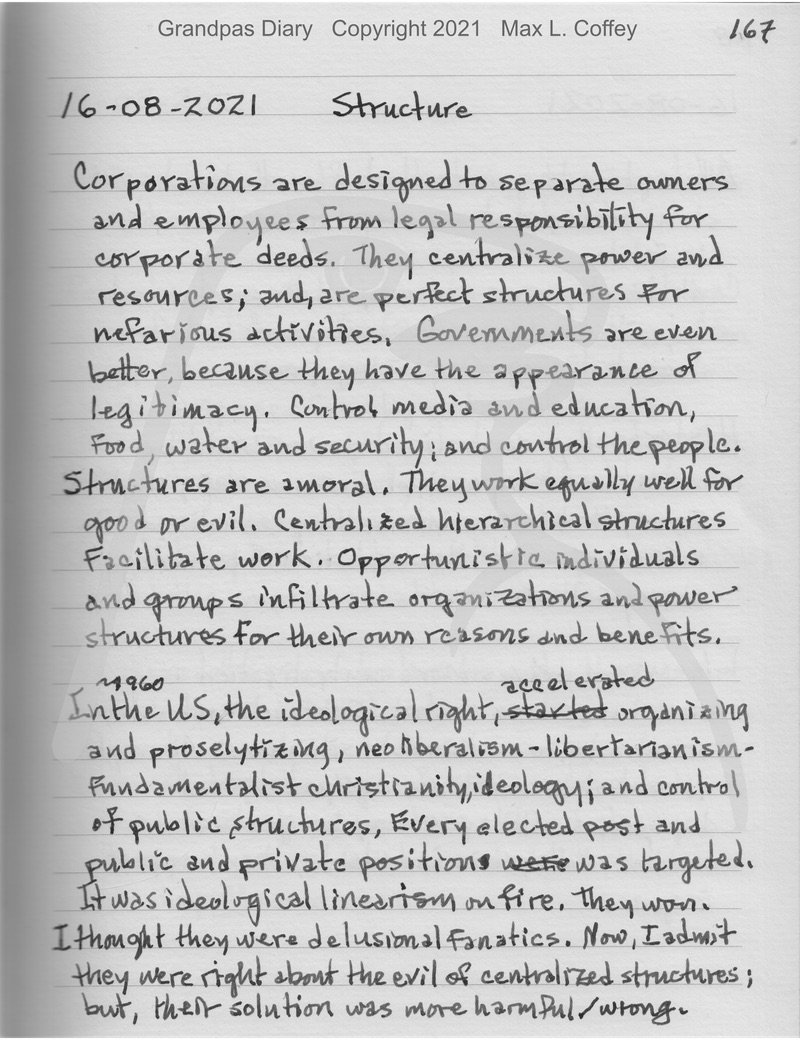 Grandpas Diary Copyright 2021 Max L. Coffey
167
16-08-2021 Structure
Corporations are designed to separate owners
and employees from legal responsibility for
corporate deeds. They centralize power and
resources; and, are perfect structures for
nefarious activities. Governments are even
better, because they have the appearance of
legitimacy. Control media and education,
food, water and security; and control the people.
Structures are amoral. They work equally well for
good or evil. Centralized hierarchical structures
facilitate work. Opportunistic individuals
and groups infiltrate organizations and power
structures for their own reasons and benefits.
~1960 accelerated
In the US, the ideological right, started organizing
and proselytizing, neoliberalism-libertarianism-
fundamentalist christianity, ideology; and control
of public structures, Every elected post and
public and private positions were was targeted.
It was ideological linearism on fire. They won.
I thought they were delusional fanatics. Now, I admit
they were right about the evil of centralized structures;
but, their solution was more harmful/wrong.